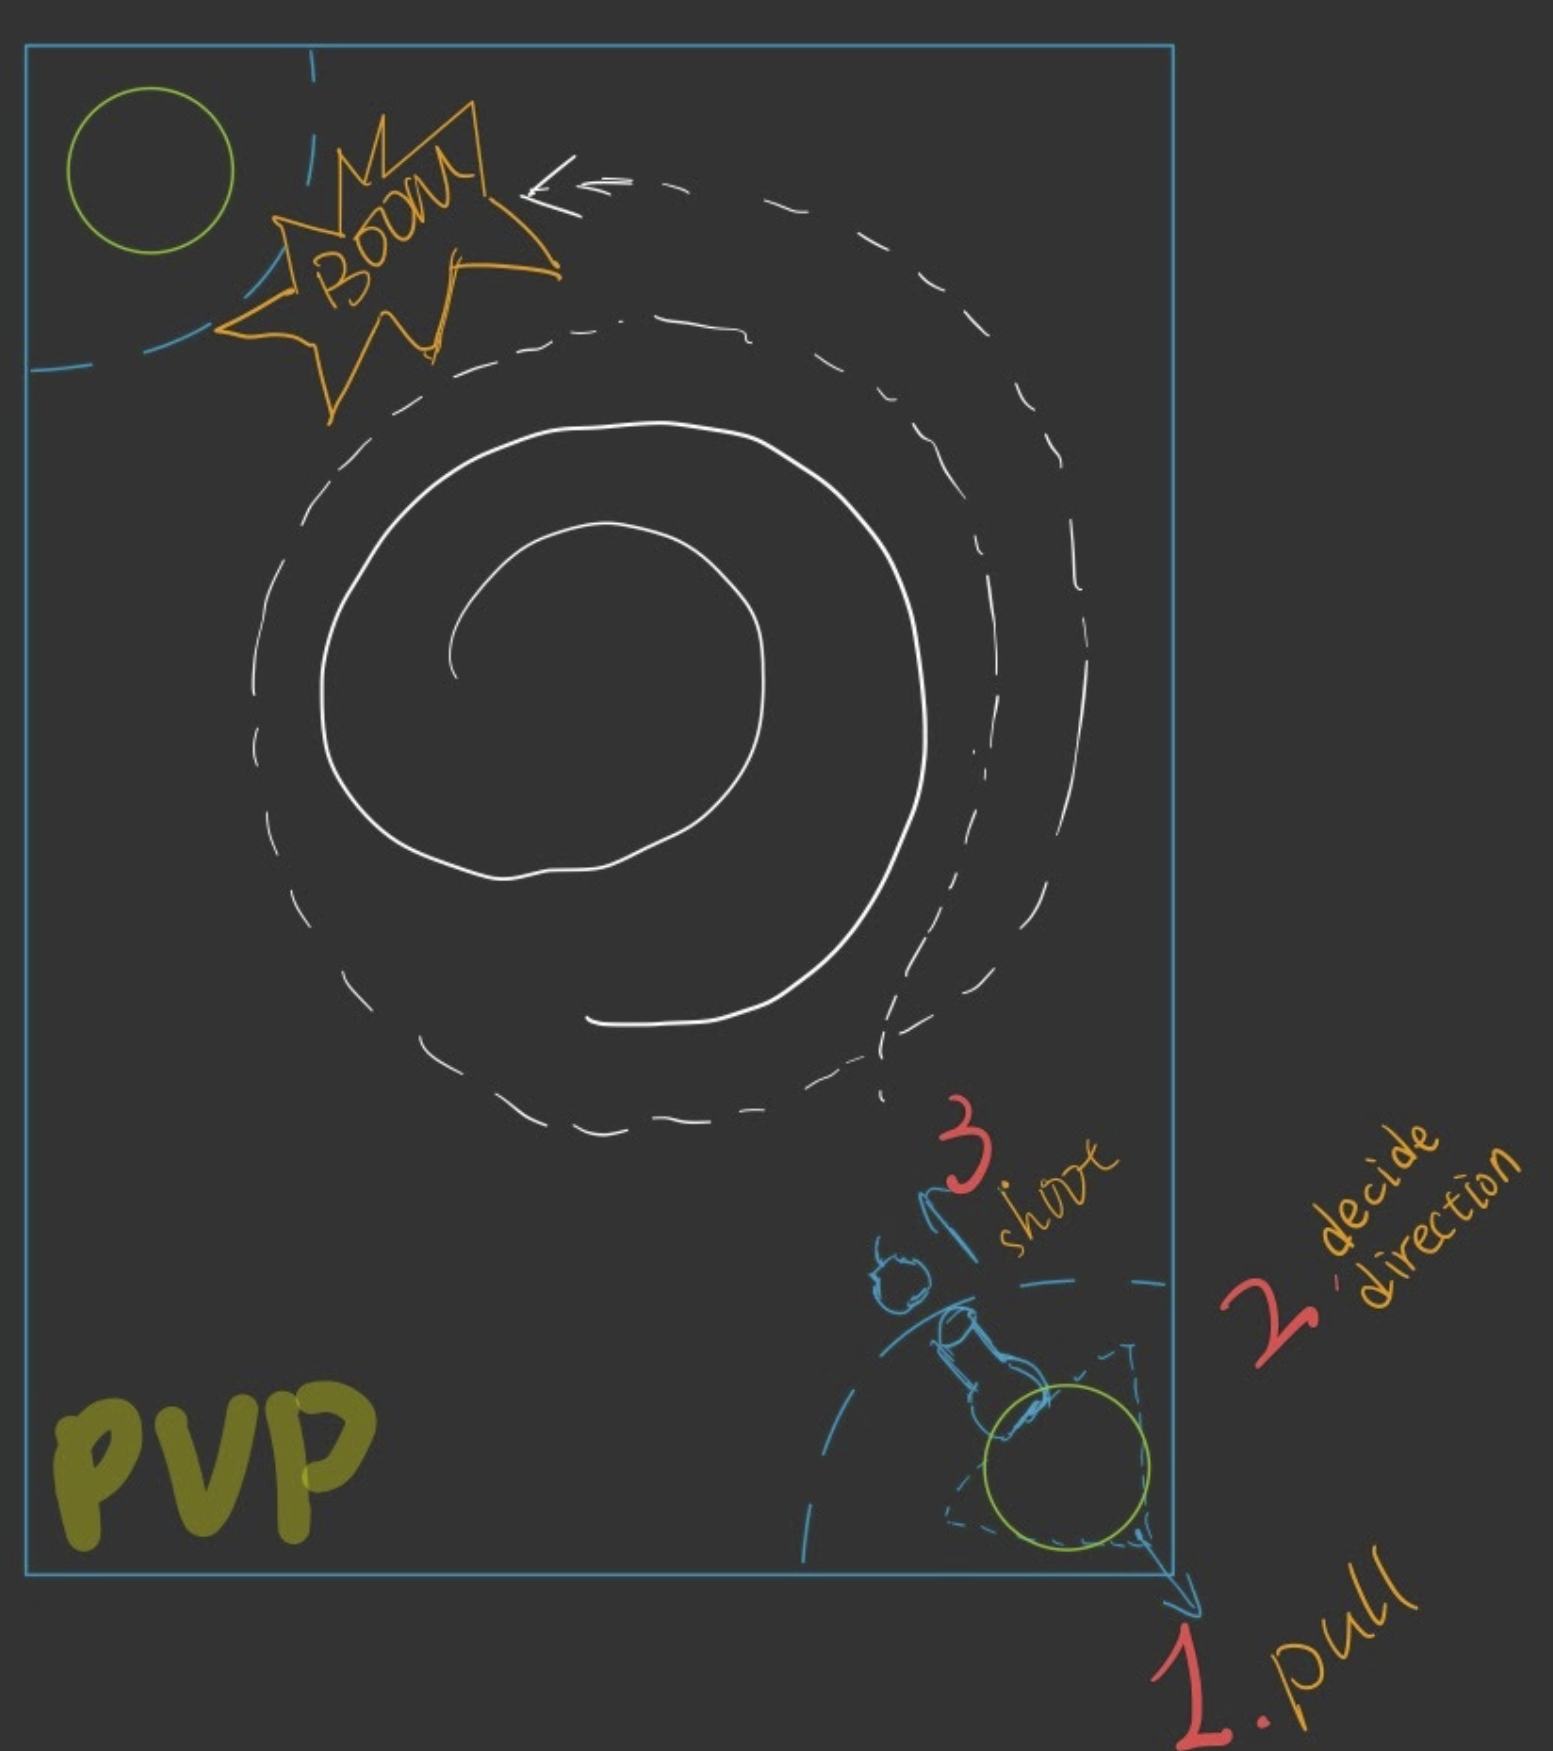 BOOM
3
shoot
2. decide
direction
PVP
1. pull